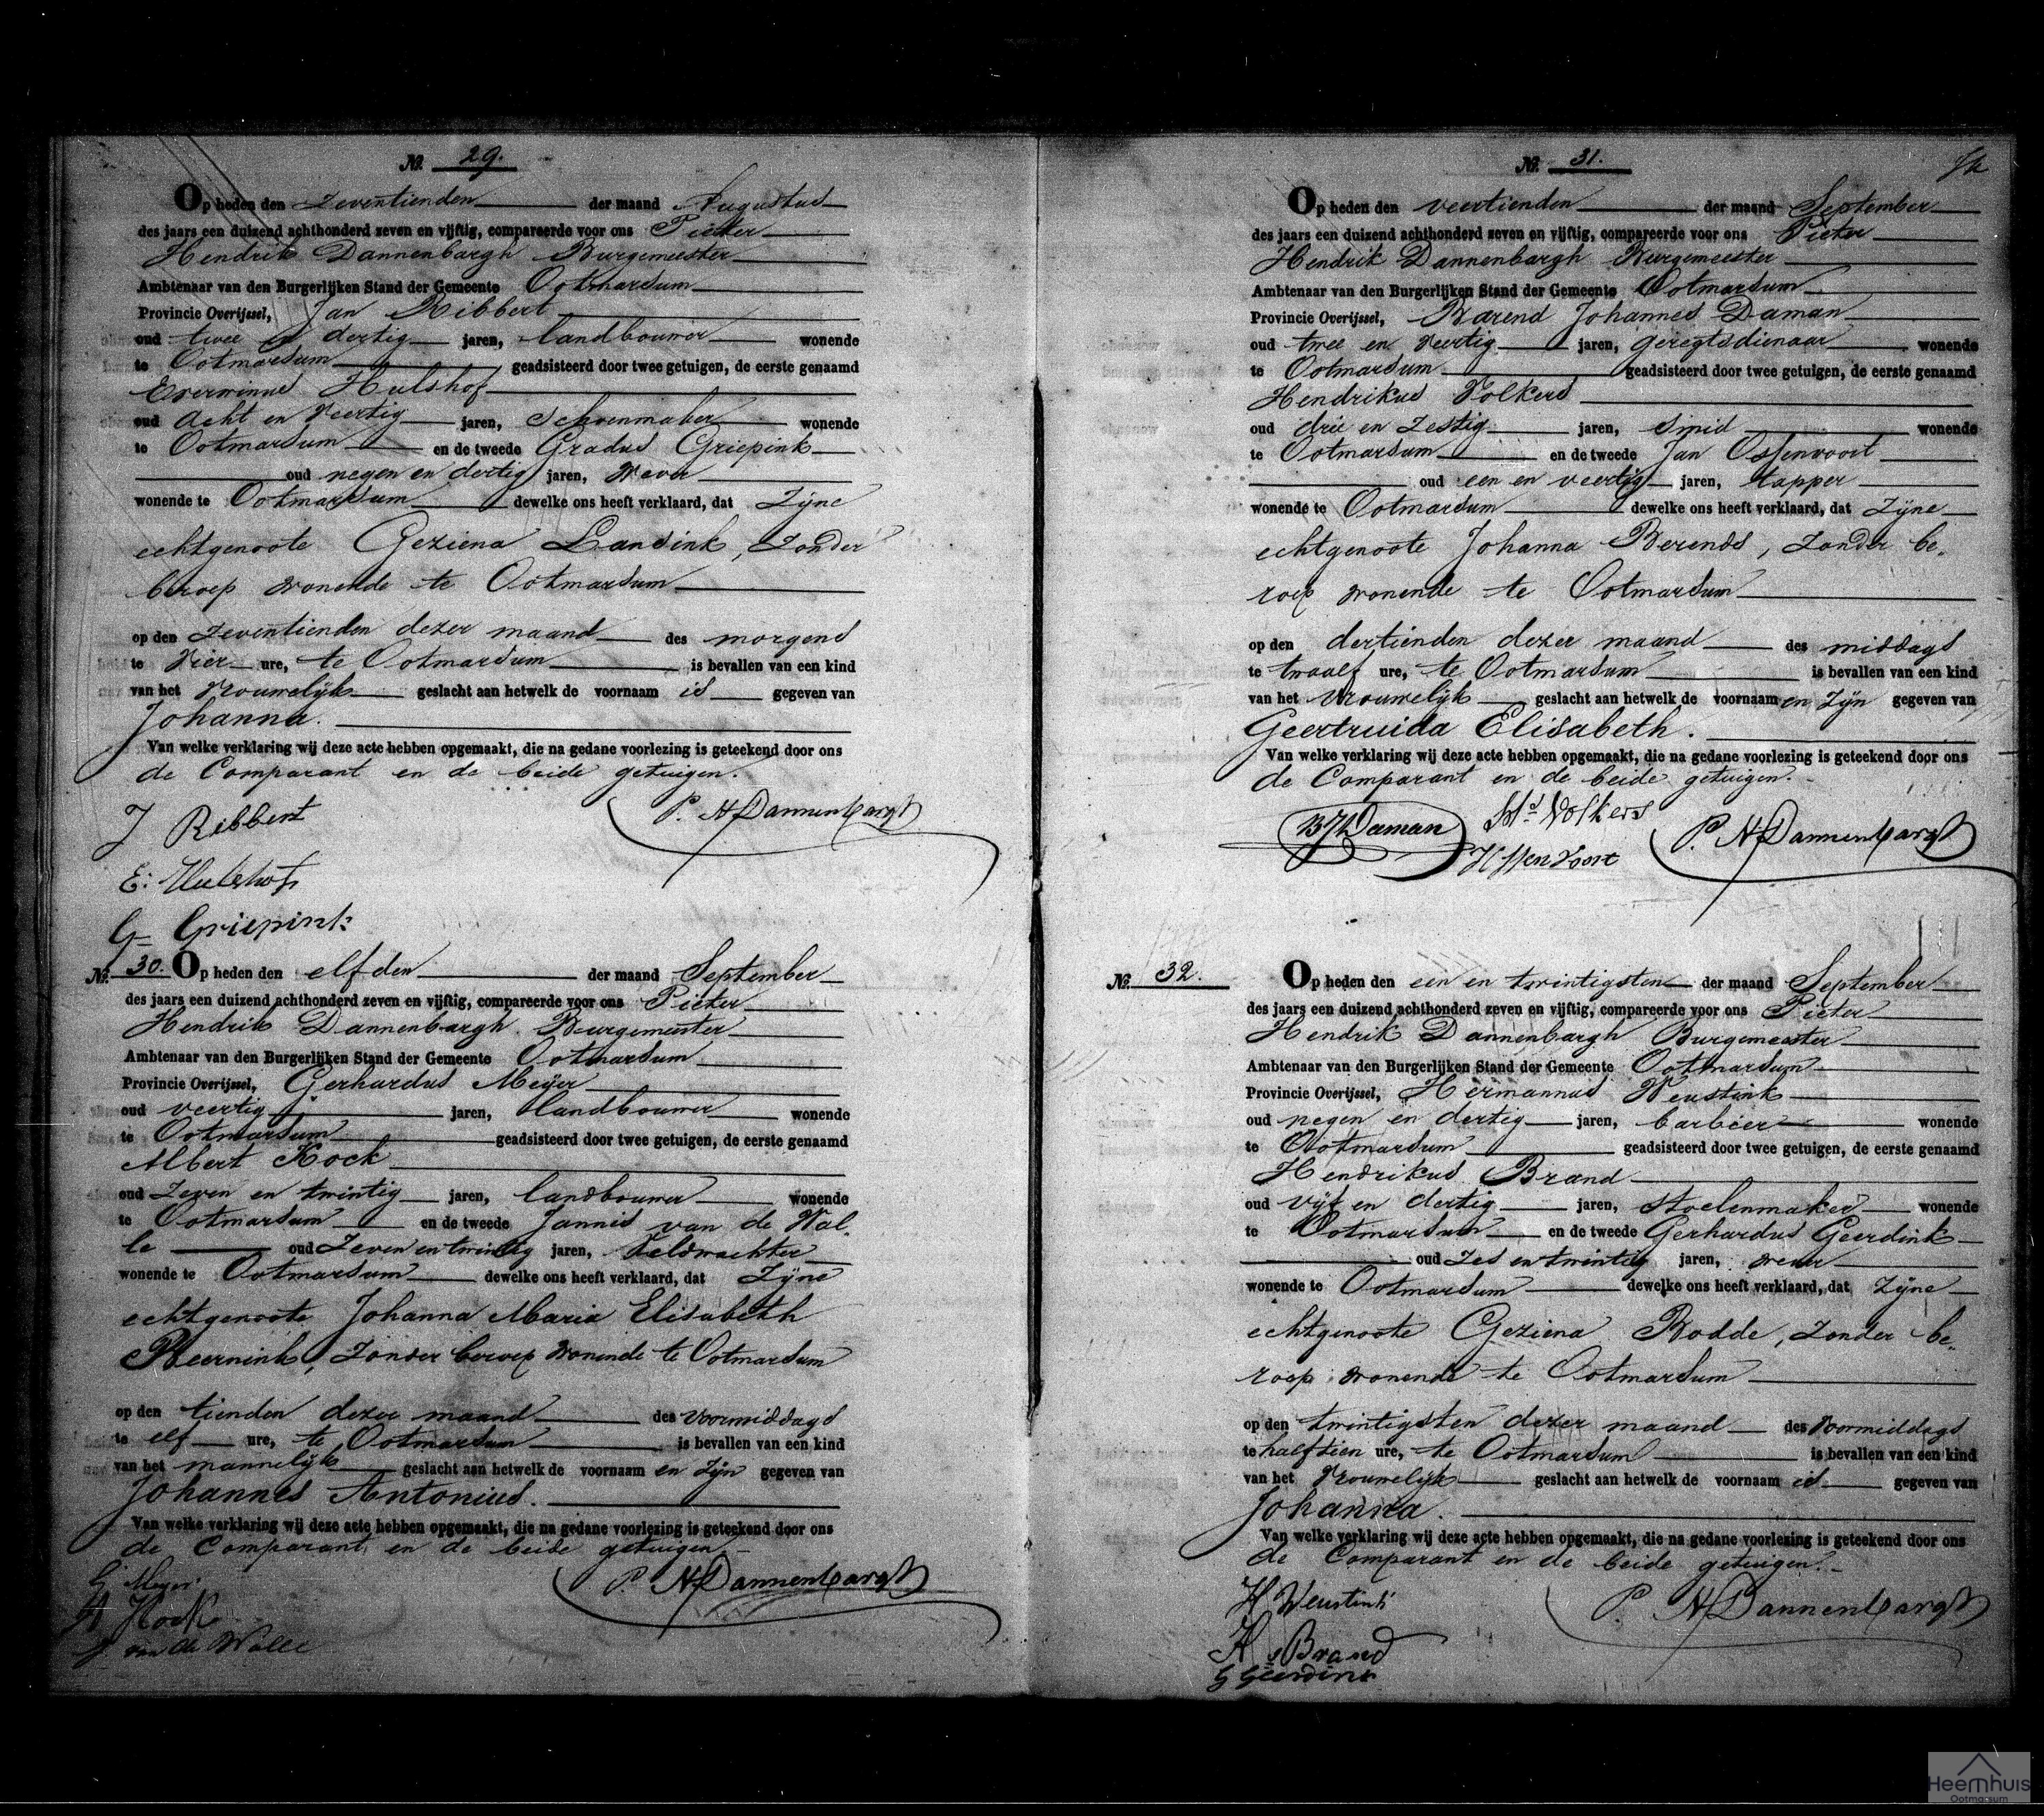 No. 29.
Op heden den zeventienden der maand Augustus
des jaars een duizend achthonderd zeven en vijftig, compareerde voor ons Pieter
Hendrik Dannenbargh Burgemeester
Ambtenaar van den Burgerlijken Stand der Gemeente Ootmarsum
Provincie Overijssel, Jan Ribbert
oud twee en dertig jaren, landbouwer wonende
te Ootmarsum geadsisteerd door twee getuigen, de eerste genaamd
Everwinus Hulshof
oud acht en veertig jaren, schoenmaker wonende
te Ootmarsum en de tweede Gradus Griepink
oud negen en dertig jaren, wever
wonende te Ootmarsum dewelke ons heeft verklaard, dat zijne
echtgenoote Geziena Lansink, zonder
beroep wonende te Ootmarsum
op den zeventienden dezer maand des morgens
te vier ure, te Ootmarsum is bevallen van een kind
van het vrouwelijk geslacht aan hetwelk de voornaam is gegeven van
Johanna.
Van welke verklaring wij deze acte hebben opgemaakt, die na gedane voorlezing is geteekend door ons
de Comparant en de beide getuigen.
J Ribbert
P. H Dannenbargh
E: Hulshof
G Griepink
No. 30. Op heden den elfden der maand September
des jaars een duizend achthonderd zeven en vijftig, compareerde voor ons Pieter
Hendrik Dannenbargh Burgemeester
Ambtenaar van den Burgerlijken Stand der Gemeente Ootmarsum
Provincie Overijssel, Gerhardus Meijer
oud veertig jaren, landbouwer wonende
te Ootmarsum geadsisteerd door twee getuigen, de eerste genaamd
Albert Kock
oud zeven en twintig jaren, landbouwer wonende
te Ootmarsum en de tweede Jannis van de Wal-
le oud zeven en twintig jaren, veldwachter
wonende te Ootmarsum dewelke ons heeft verklaard, dat zijne
echtgenoote Johanna Maria Elisabeth
Reernink, zonder beroep wonende te Ootmarsum
op den tienden dezer maand des voormiddags
te elf ure, te Ootmarsum is bevallen van een kind
van het mannelijk geslacht aan hetwelk de voornaam en zijn gegeven van
Johannes Antonius.
Van welke verklaring wij deze acte hebben opgemaakt, die na gedane voorlezing is geteekend door ons
de Comparant en de beide getuigen.
G Meijer
P. H Dannenbargh
A Kock
J van de Walle
No. 31.
Op heden den veertienden der maand September
des jaars een duizend achthonderd zeven en vijftig, compareerde voor ons Pieter
Hendrik Dannenbargh Burgemeester
Ambtenaar van den Burgerlijken Stand der Gemeente Ootmarsum
Provincie Overijssel, Barend Johannes Daman
oud twee en veertig jaren, geregtsdienaar wonende
te Ootmarsum geadsisteerd door twee getuigen, de eerste genaamd
Hendrikus Volkers
oud drie en zestig jaren, smid wonende
te Ootmarsum en de tweede Jan Ossenvoort
oud een en veertig jaren, tapper
wonende te Ootmarsum dewelke ons heeft verklaard, dat zijne
echtgenoote Johanna Berends, zonder be-
roep wonende te Ootmarsum
op den dertienden dezer maand des middags
te twaalf ure, te Ootmarsum is bevallen van een kind
van het vrouwelijk geslacht aan hetwelk de voornaam en zijn gegeven van
Geertruida Elisabeth.
Van welke verklaring wij deze acte hebben opgemaakt, die na gedane voorlezing is geteekend door ons
de Comparant en de beide getuigen.
BJ Daman
Volkers
P. H Dannenbargh
No. 32.
Op heden den een en twintigsten der maand September
des jaars een duizend achthonderd zeven en vijftig, compareerde voor ons Pieter
Hendrik Dannenbargh Burgemeester
Ambtenaar van den Burgerlijken Stand der Gemeente Ootmarsum
Provincie Overijssel, Hermannus Weustink
oud negen en dertig jaren, barbier wonende
te Ootmarsum geadsisteerd door twee getuigen, de eerste genaamd
Hendrikus Brand
oud vijf en dertig jaren, stoelenmaker wonende
te Ootmarsum en de tweede Gerhardus Geerdink
oud zes en twintig jaren, wever
wonende te Ootmarsum dewelke ons heeft verklaard, dat zijne
echtgenoote Geziena Rodde, zonder be-
roep wonende te Ootmarsum
op den twintigsten dezer maand des voormiddags
te half tien ure, te Ootmarsum is bevallen van een kind
van het vrouwelijk geslacht aan hetwelk de voornaam is gegeven van
Johanna.
Van welke verklaring wij deze acte hebben opgemaakt, die na gedane voorlezing is geteekend door ons
de Comparant en de beide getuigen.
H Weustink
P. H Dannenbargh
H Brand
G Geerdink
Heemhuis
Ootmarsum